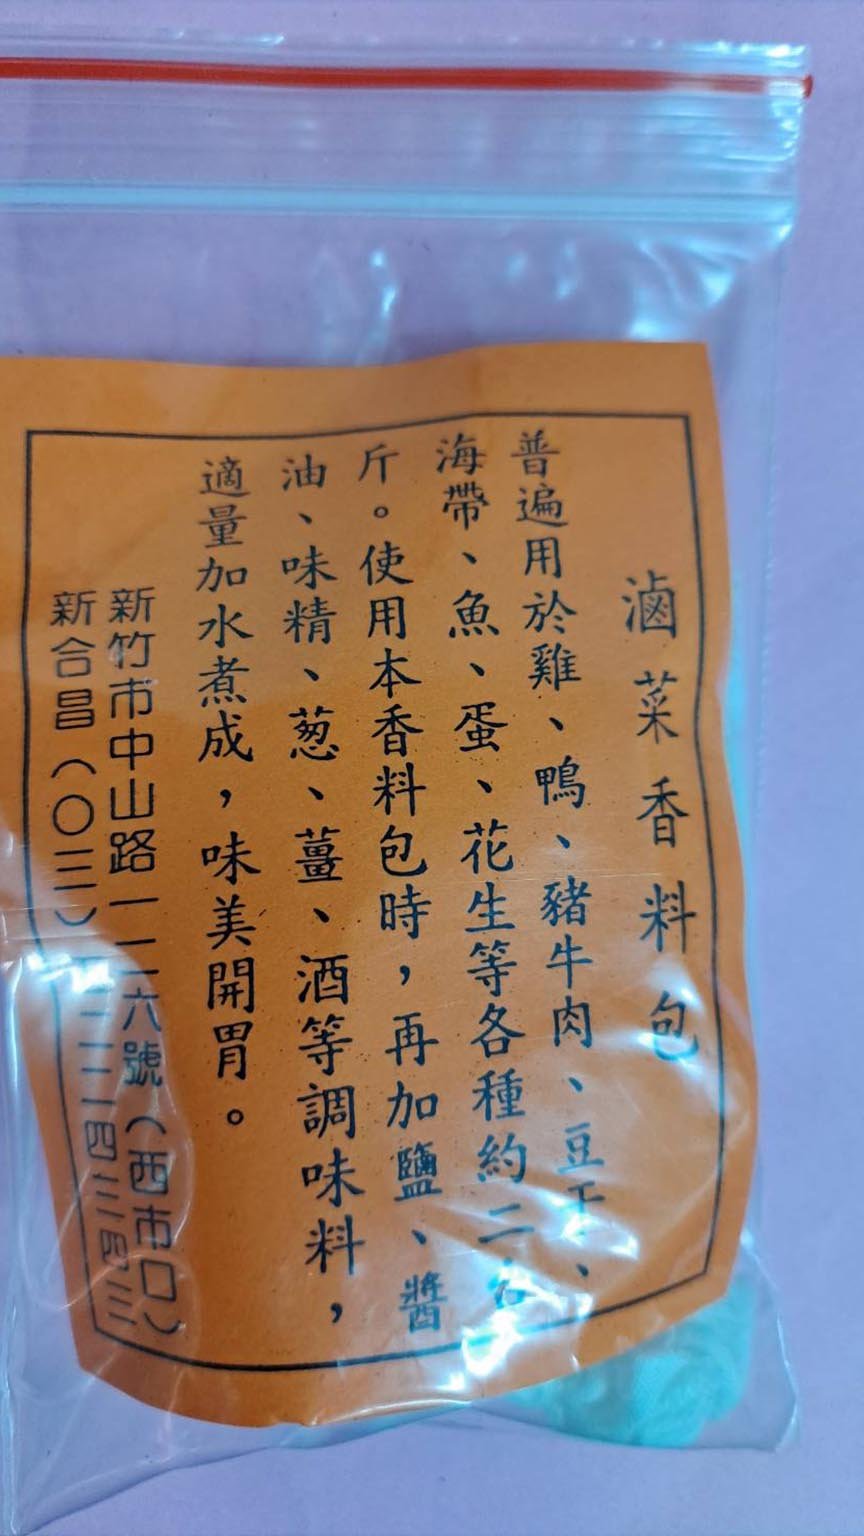 滷菜香料包
普遍用於雞、鴨、豬牛肉、豆干、
海帶、魚、蛋、花生等各種約二台
斤。使用本香料包時，再加鹽、醬
油、味精、葱、薑、酒等調味料，
適量加水煮成，味美開胃。
新竹市中山路一一六號（西市口）
新合昌（〇三）二四三四三